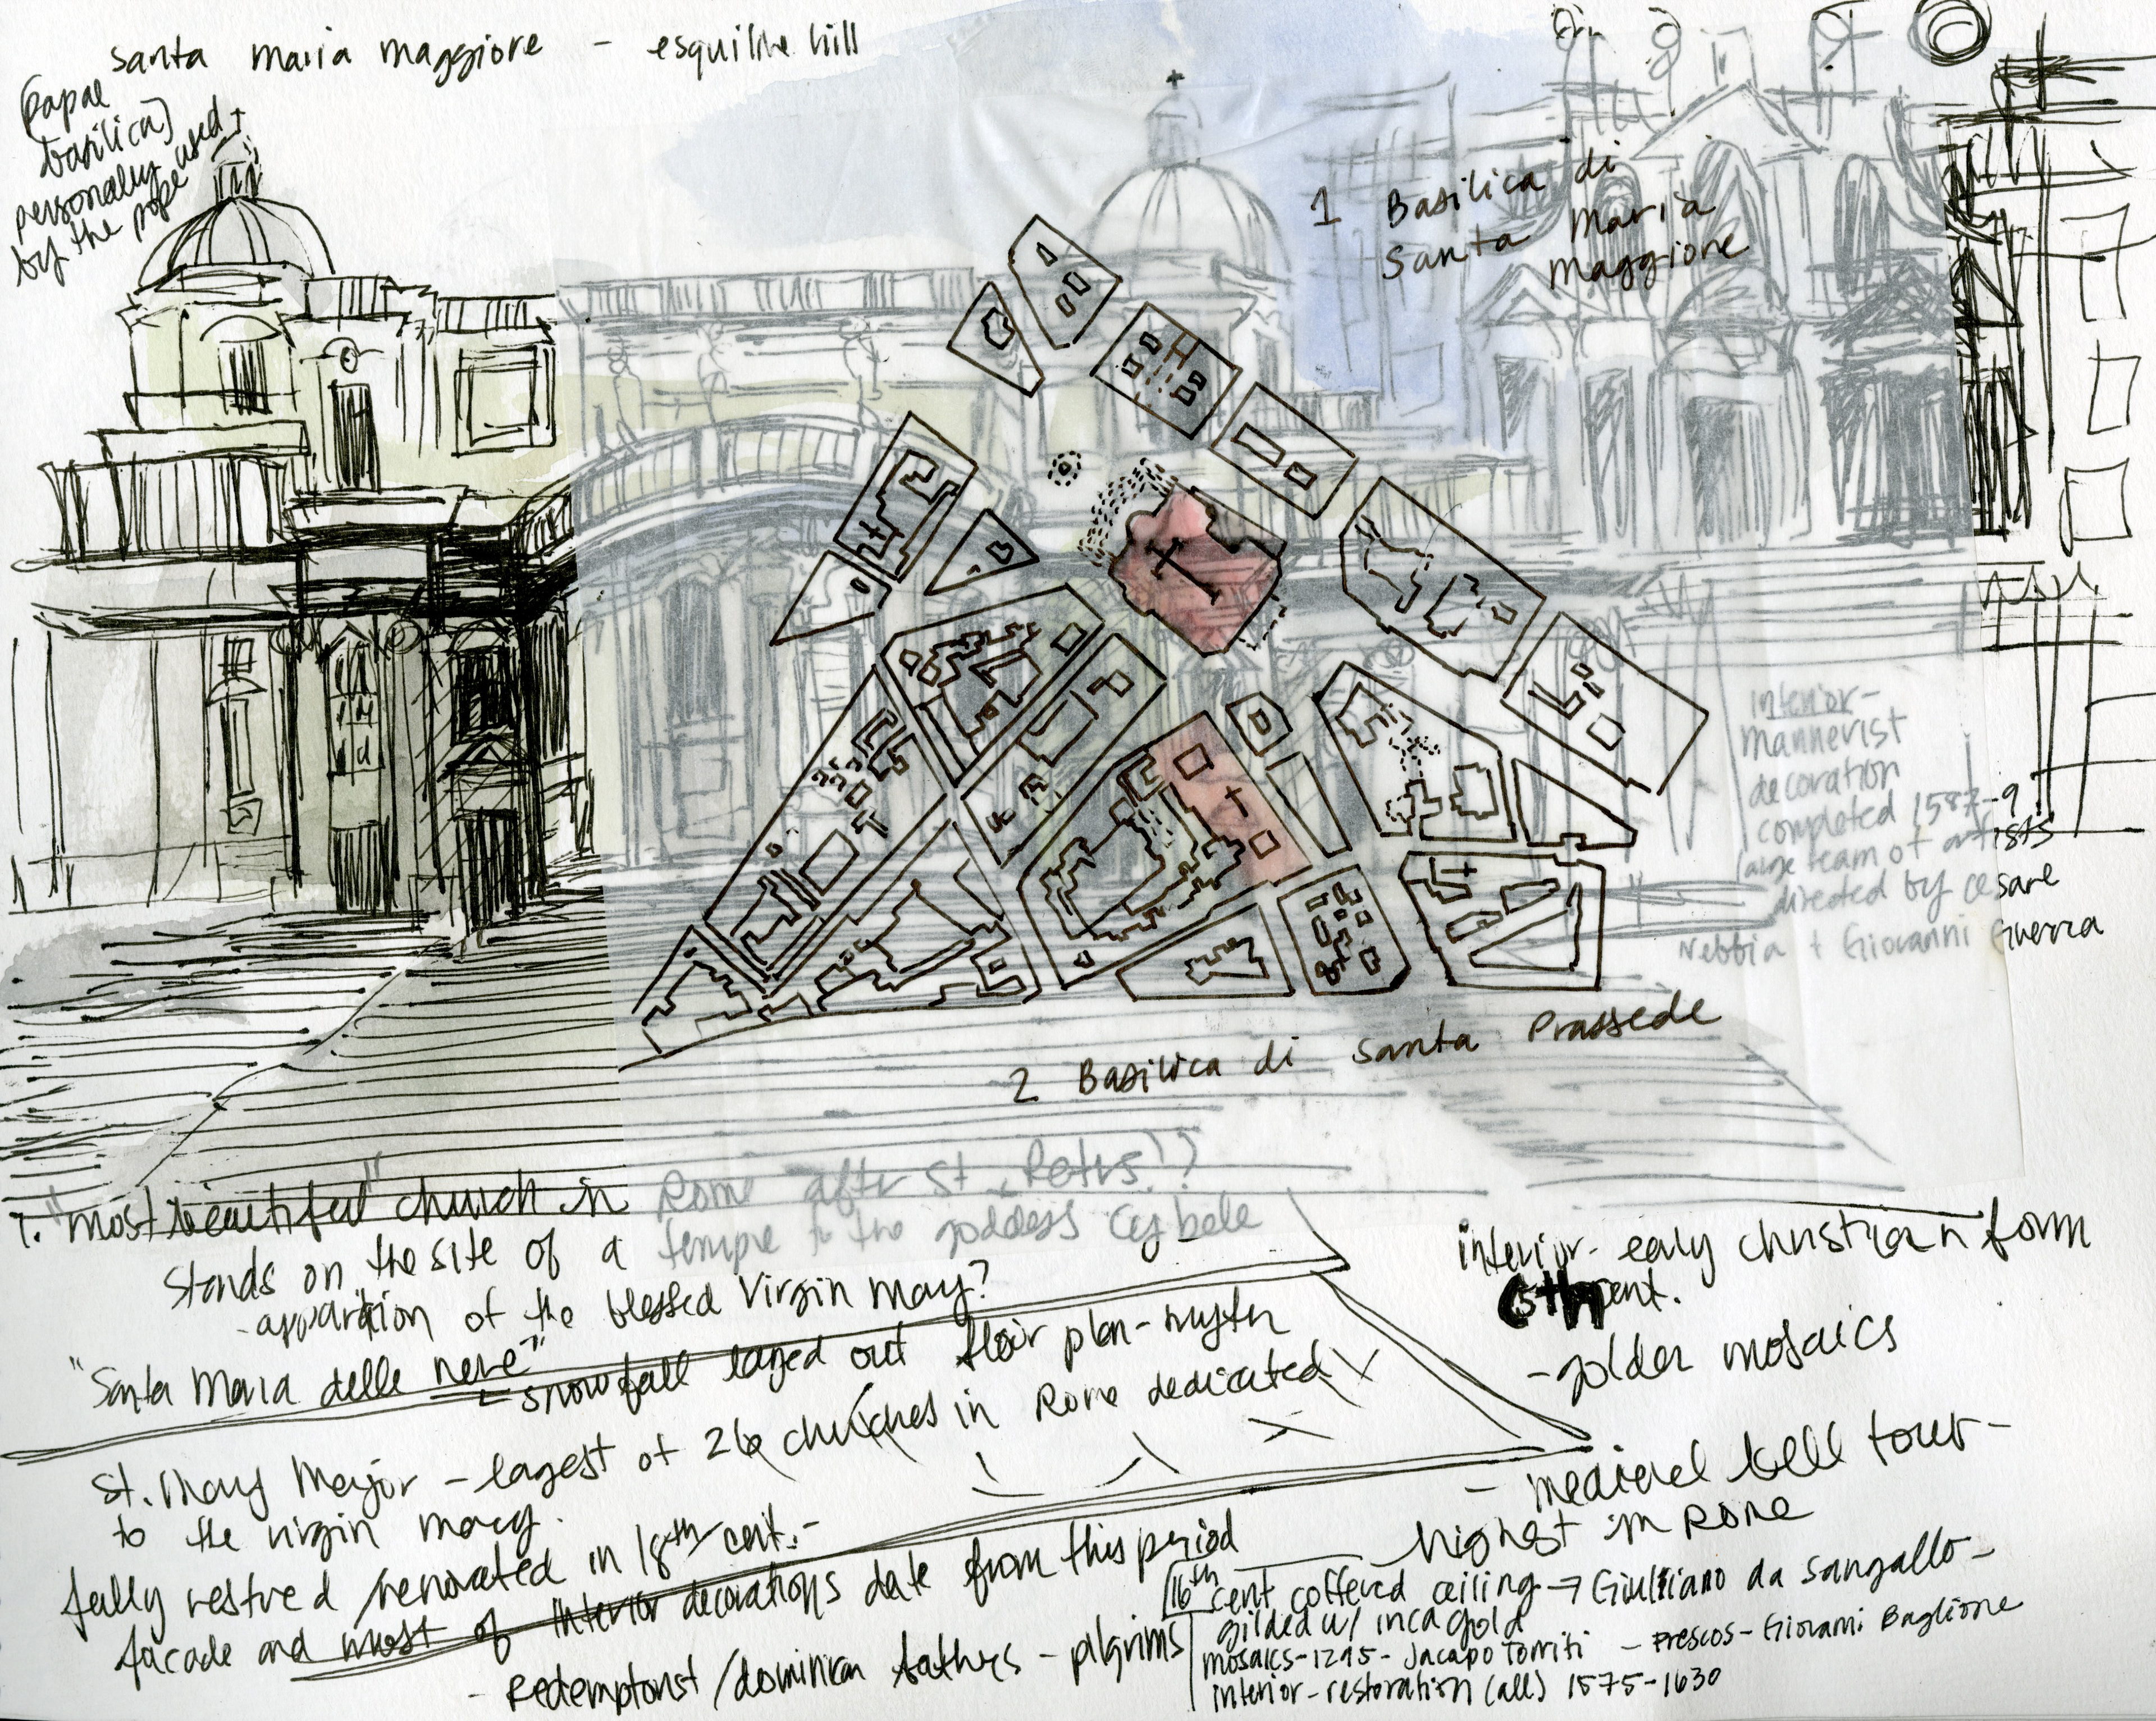 Santa Maria Maggiore - esquiline hill
(papal
basilica)
personally used
by the pope
1 Basilica di
Santa Maria
Maggiore
interior-
mannerist
decoration
completed 1587-9
large team of artists
directed by Cesare
Nebbia + Giovanni Guerra
2 Basilica di Santa Prassede
1. "most beautiful" church in Rome after St. Peters!?
Stands on the site of a temple to the goddess Cybele
- apparition of the blessed Virgin Mary?
"Santa Maria delle neve"
- snowfall layed out floor plan - myth
St. Mary Major - lagest of 26 churches in Rome dedicated
to the virgin mary.
fully restred / renovated in 18th cent. -
facade and most of interior decorations date from this period
- Redemptorist / dominican fathers - pilgrims
interior - early christian form
5th cent.
- golden mosaics
- medieval bell tower -
highest in Rome
16th cent coffered ceiling → Giuliano da Sangallo -
gilded w/ inca gold
mosaics - 1295 - Jacapo Torriti - Frescos - Giovanni Baglione
interior - restoration (all) 1575-1630